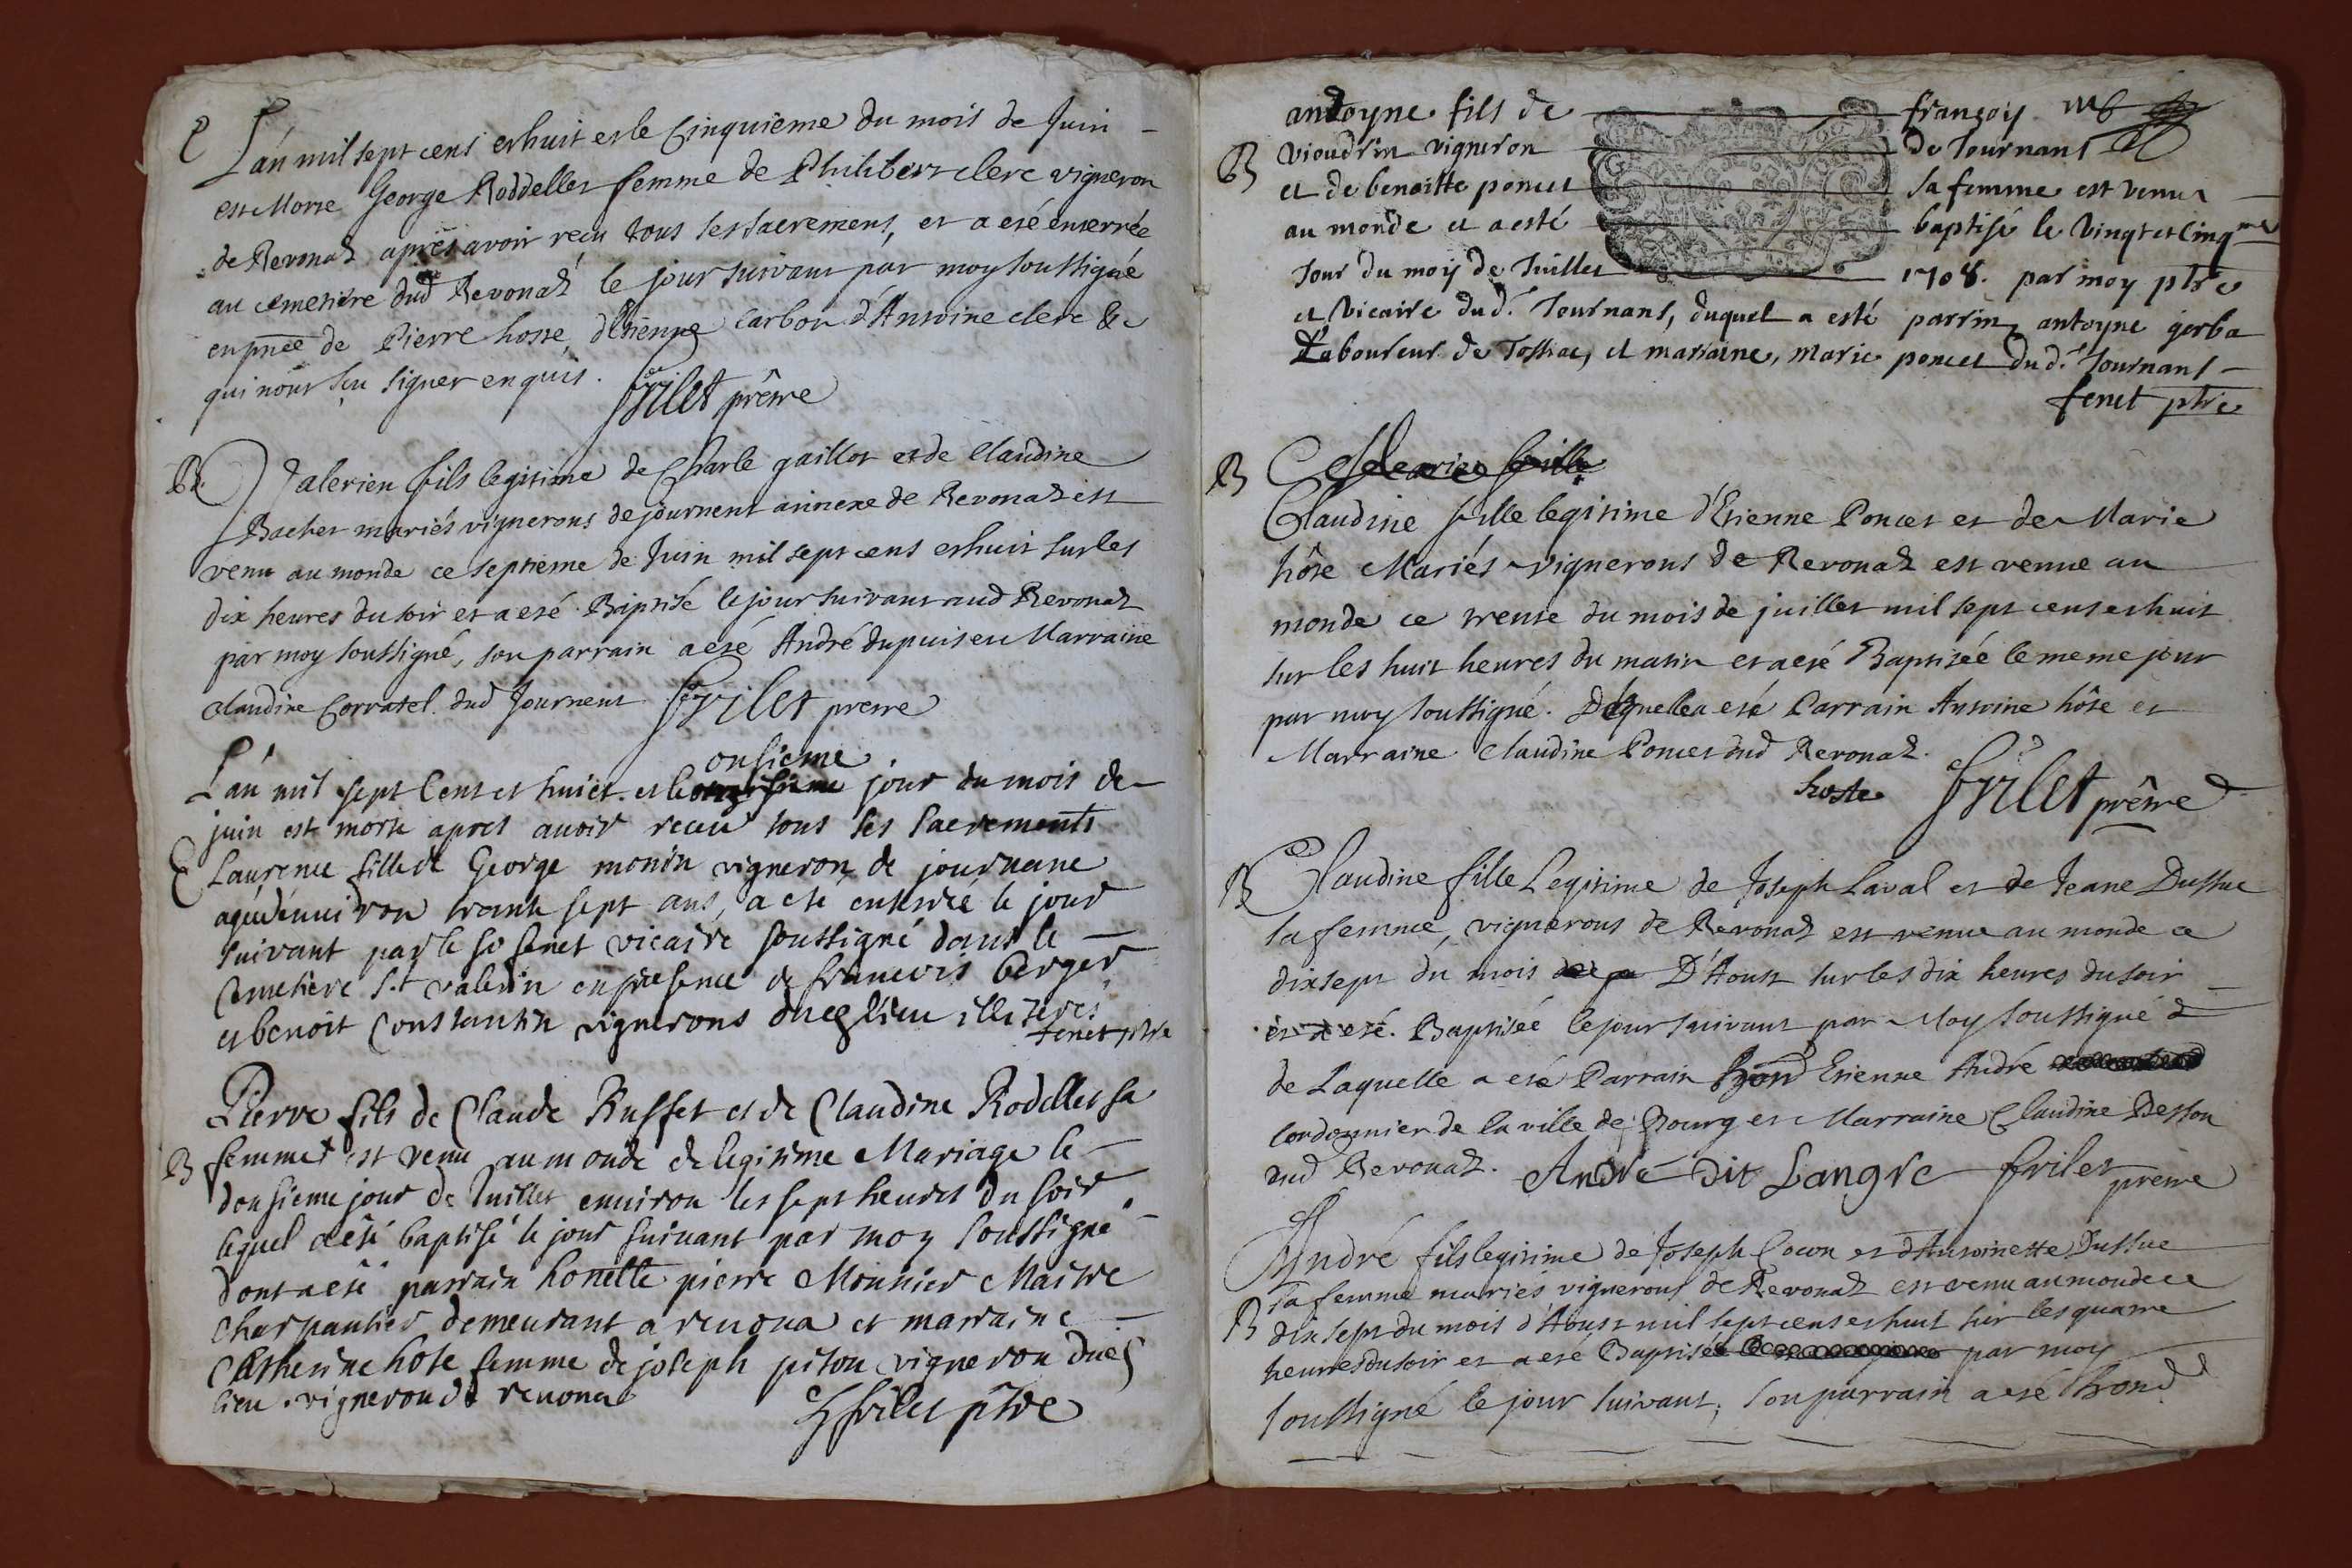 E L'an mil sept cens et huit et le Cinquieme du mois de Juin
est Morte George Roddellet femme de Philibert clerc vigneron
de Revonaz après avoir reçu tous ses sacremens, et a eté enterrée
au cemetiere dud Revonaz le jour suivant par moy soussigné
en pñce de Pierre hoste, d'Etienne Carbon d'Antoine clerc &c
qui n'ont sçu signer enquis. frilet prêtre
B. Valerien fils legitime de Charle gaillot et de Claudine
Bachet mariés vignerons de journent annexe de Revonaz est
venu au monde ce septieme de Juin mil sept cens et huit sur les
dix heures du soir et a eté Baptisé le jour suivant aud Revonaz
par moy soussigné, son parrain a eté André dupuis et Marraine
claudine Corratel dud Journent frilet pretre
onsieme
L'an mil sept Cent et huict et le jour du mois de
juin est morte apres avoir receu tous ses sacrements
E Laurence fille de George monin vigneron de journane
agée d'environ trante sept ans, a eté enterrée le jour
suivant par le sr fenet vicaire soussigné dans le
Cimetiere st valerin en presence de francois berger
et benoit Constantin vignerons dud lieu illiteres
fenet ptre
Pierre fils de Claude Buffet et de Claudine Rodellet sa
B femme est venu au monde de legitime Mariage le
dousieme jour de Juillet environ les sept heures du soir
lequel a eté baptisé le jour suivant par moy soussigné
dont a eté parrain honette pierre Monnier Maitre
Charpantier demeurant a revona et marraine
Catherine hote femme de joseph piton vigneron dud
lieu. vigneron de revona frilet ptre
antoyne fils de françoy
B vioudrin vigneron de Journans
et de benoitte poncet sa femme est venu
au monde et a esté baptisé le vingt et cinqme
Jour du moy de Juillet 1708. par moy ptre
et vicaire dud. Journans, duquel a esté parrin antoyne gerba
Laboureur de Tossiac, et marraine, marie poncet dud. Journans
fenet ptre
B
Claudine fille legitime d'Etienne Poncet et de Marie
hôte Mariés vignerons de Revonaz est venue au
monde ce trente du mois de juillet mil sept cens et huit
sur les huit heures du matin et a eté Baptisée le meme jour
par moy soussigné. De laquelle a eté Parrain Antoine hôte et
Marraine Claudine Poncet dud Revonaz.
hoste frilet prêtre
B Claudine fille Legitime de Joseph Laval et de Jeane Dussuc
sa femme, vignerons de Revonaz est venue au monde ce
dix sept du mois D'Aoust sur les dix heures du soir
et a eté Baptisée le jour suivant par Moy soussigné
de Laquelle a eté Parrain Etienne André
Cordonnier de la ville de Bourg et Marraine Claudine Besson
dud Revonaz. André dit Langre frilet pretre
André fils legitime de Joseph Cocon et d'Antoinette Dussuc
sa femme mariés vignerons de Revonaz est venu au monde ce
B dix sept du mois d'Aoust mil sept cens et huit sur les quatre
heures du soir et a eté Baptisé par moy
soussigné le jour suivant, son parrain a eté hond